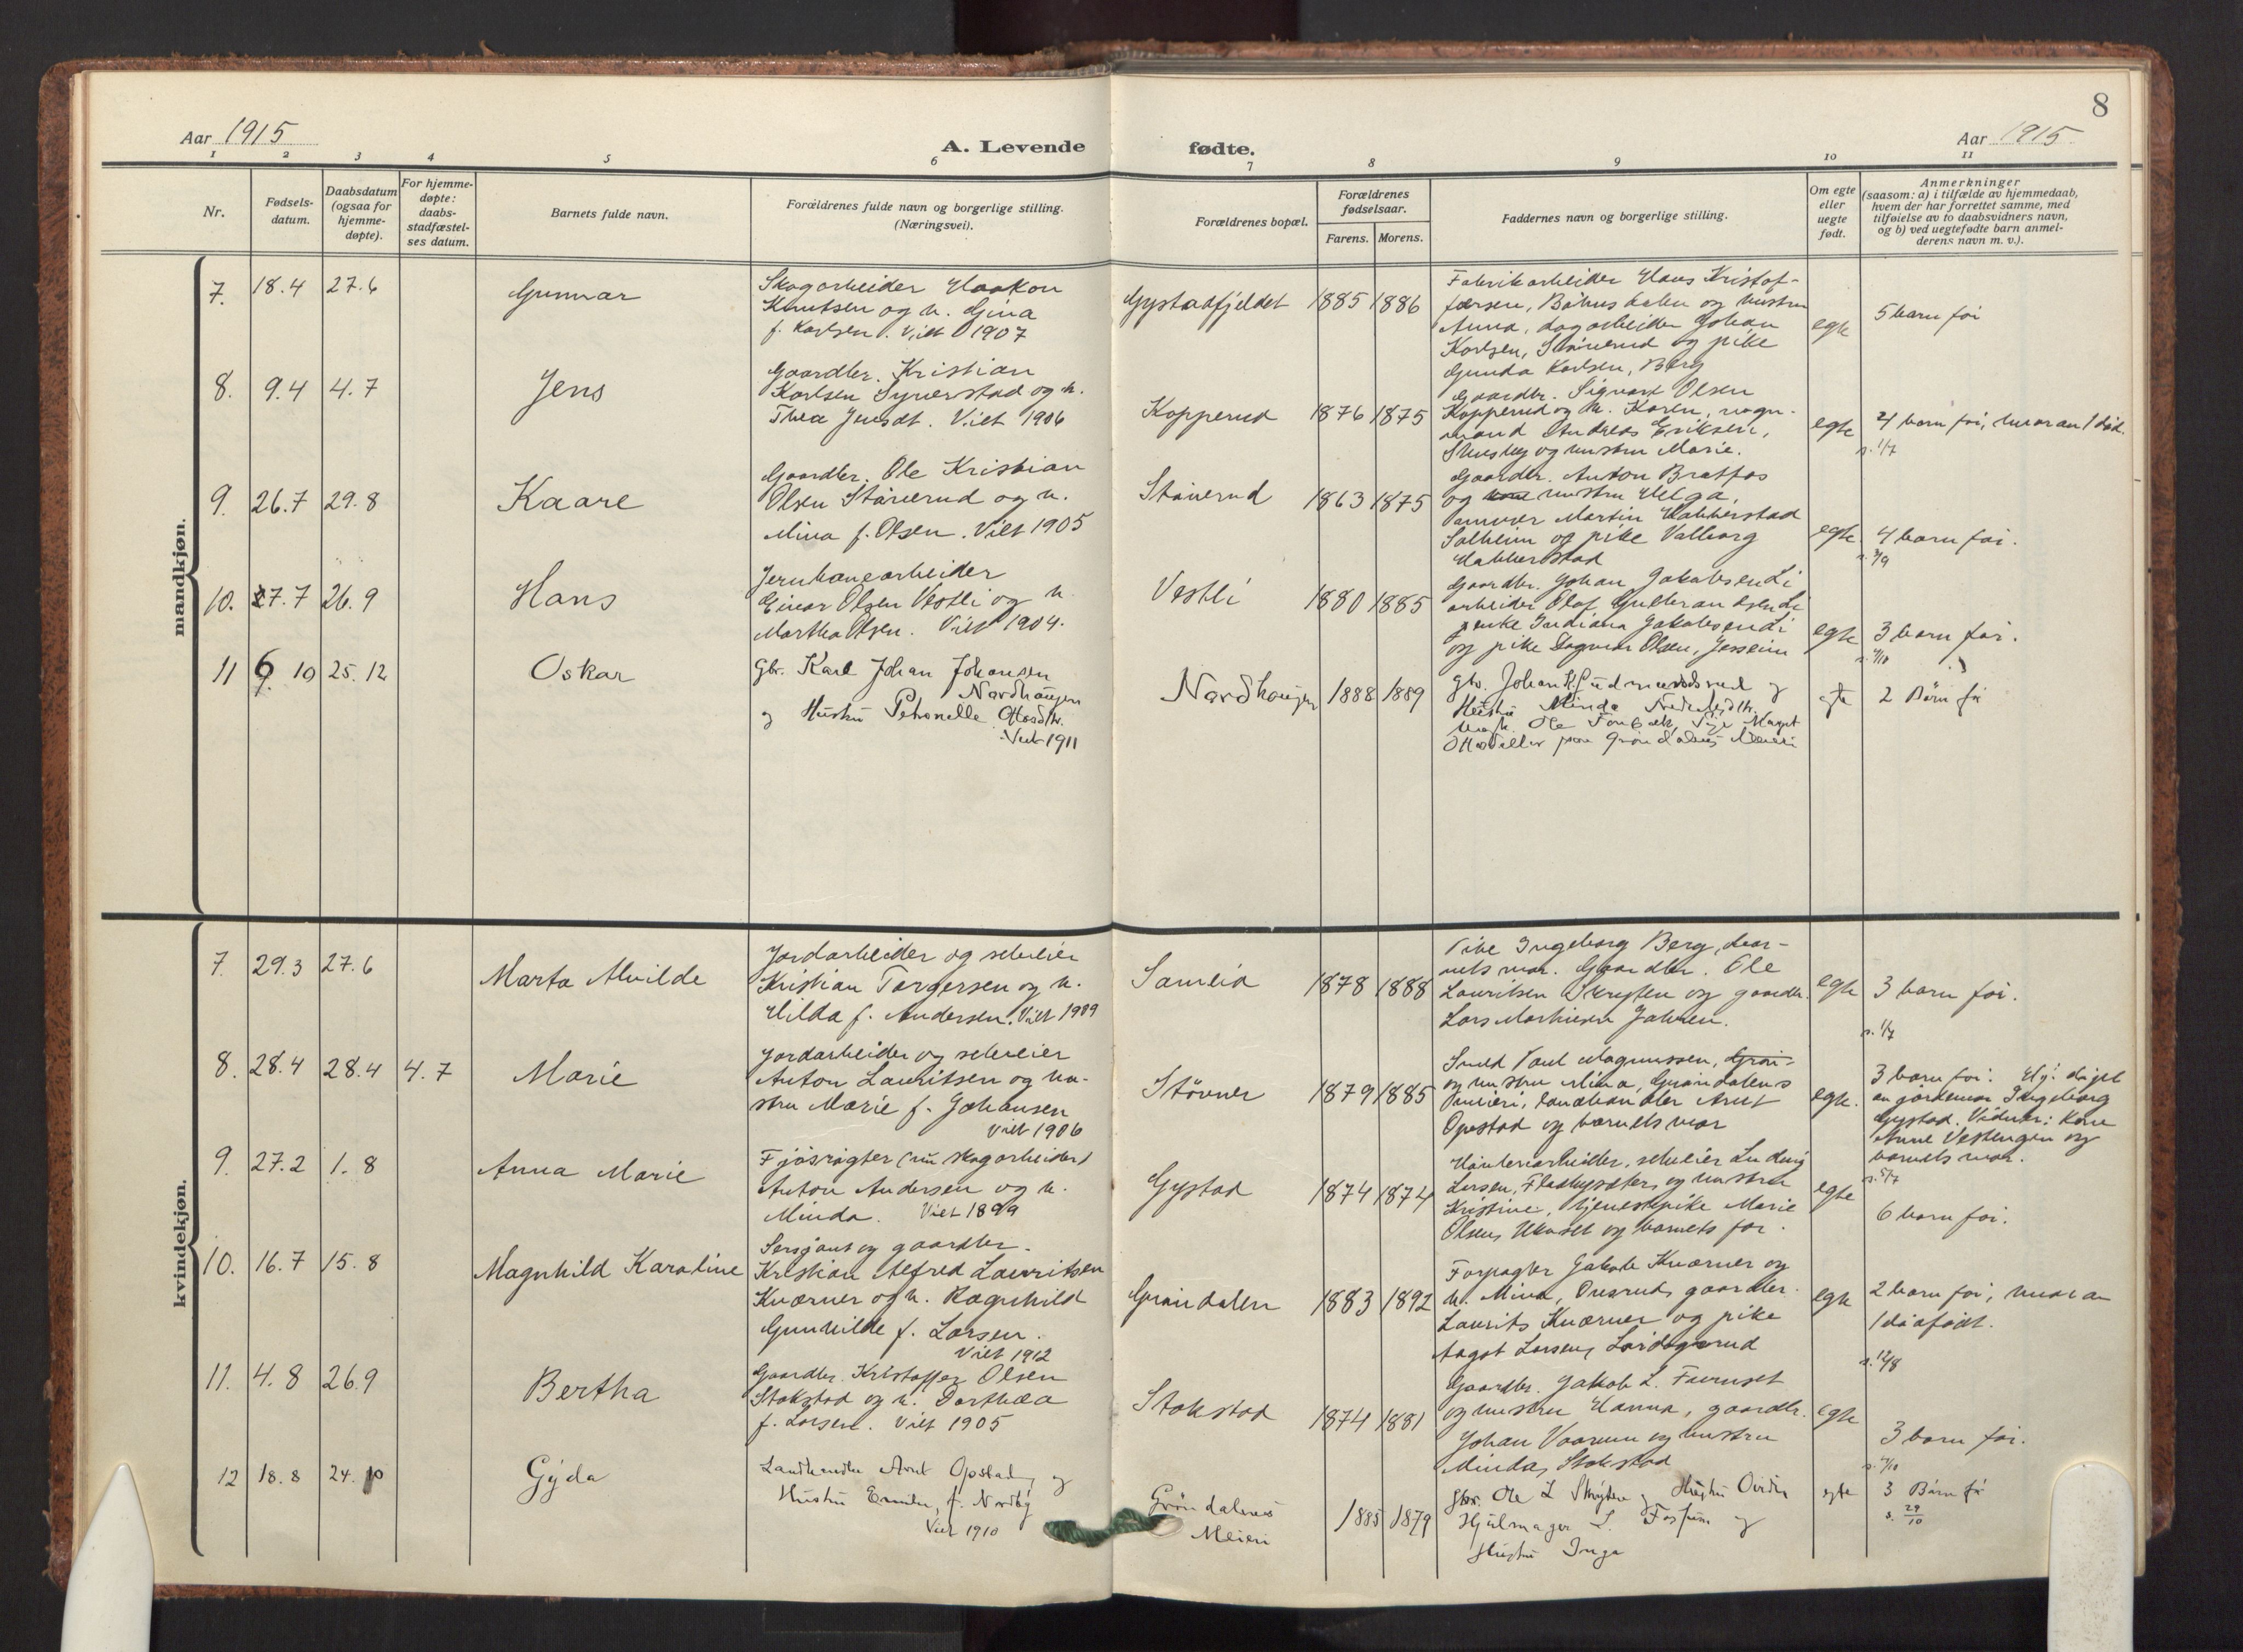 8
Aar 1915
A. Levende
fødte.
Aar 1915
1 2 3 4 5 6 7 8 9 10 11
Nr.
Fødsels-
datum.
Daabsdatum
(ogsaa for
hjemme-
døpte).
For hjemme-
døpte:
daabs-
stadfæstel-
ses datum.
Barnets fulde navn.
Forældrenes fulde navn og borgerlige stilling.
(Næringsvei).
Forældrenes bopæl.
Forældrenes
fødselsaar.
Farens. Morens.
Faddernes navn og borgerlige stilling.
Om egte
eller
uegte
født.
Anmerkninger
(saasom: a) i tilfælde av hjemmedaab,
hvem der har forrettet samme, med
tilføielse av to daabsvidners navn,
og b) ved uegtefødte barn anmel-
derens navn m. v.).
mandkjøn.
7. 18.4 27.6
Gunnar
Skogarbeider Haakon
Knutsen og h. Gina
f. Karlsen. Viet 1907
Gystadfjeldet 1885 1886
Fabrikarbeider Hans Kristof-
fersen, og hustru
Anna, dagarbeider Johan
Karlsen, Stånerud og pike
Gunda Karlsen, Berg
egte
5 barn før
8. 9.4 4.7
Jens
Gaardbr. Kristian
Karlsen Synerstad og h.
Thea Viet 1906
Kopperud 1876 1875
Gaardbr. Sigvart Olsen
Kopperud og h. Karen, vogn-
mand Andreas Eriksen,
og hustru Marie.
egte
4 barn før, hvorav 1 død.
s. 1/7
9. 26.7 29.8
Kaare
Gaardbr. Ole Kristian
Olsen Stånerud og h.
Mina f. Olsen. Viet 1905
Stånerud 1863 1875
Gaardbr. Anton Bratfos
og hustru Helga,
Martin Habberstad
Solheim og pike Valborg
Habberstad
egte
4 barn før.
s. 3/9
10. 27.7 26.9
Hans
Jernbanearbeider
Einar Olsen Vestli og h.
Martha Olsen. Viet 1904.
Vestli 1880 1885
Gaardbr. Johan Jakobsen Li
arbeider Olaf Gulbrandsen Li
penke Indiana Jakobsen Li
og pike Dagmar Olsen, Jessheim
egte
3 barn før.
11 6. 10 25.12
Oskar
Gbr. Karl Johan Johansen
Nordhaugen
og Hustru Petronelle
Viet 1911
Nordhaugen 1888 1889
Gbr. Johan
Hustru Minda
Ole
Grøndalens Meieri
egte
2 Børn før
kvindekjøn.
7. 29.3 27.6
Marta Alvilde
Jordarbeider og selveier
Kristian Torgersen og h.
Hilda f. Andersen. Viet 1909
Samlia 1878 1888
Pike Ingeborg Berg, bar-
nets mor. Gaardbr. Ole
Lauritsen Skryten og gaardbr.
Lars Mathisen
egte
3 barn før.
s. 1/7
8. 28.4 28.4 4.7
Marie
Jordarbeider og selveier
Anton Lauritsen og hu-
stru Marie f. Johansen
Viet 1906
Størner 1879 1885
Smed Paul Magnussen, Grøn-
og hustru Mina, Grøndalens
meieri, landhandler Arnt
Opstad og barnets mor
egte.
3 barn før. Hj. døpt
av jordemor Ingeborg
Gystad. Vidner: Kone
Anne Vestengen og
barnets mor.
s. 5/7
9. 27.2 1.8
Anna Marie
Fjøsrøgter (nu skogarbeider)
Anton Andersen og h.
Minda. Viet 1899
Gystad 1874 1874
selveier Ludvig
Larsen, og hustru
Kristine, tjenestepike Marie
Olsen, og barnets far.
egte
6 barn før.
10. 16.7 15.8
Magnhild Karoline
Sersjant og gaardbr.
Kristian Alfred Lauritsen
Kværner og h. Ragnhild
Gunhilde f. Larsen.
Viet 1912
Grøndalen 1883 1892
Forpagter Jakob Kværner og
h. Mina, Onsrud, gaardbr.
Laurits Kværner og pike
Aagot Larsen,
egte
2 barn før, hvorav
1 dødfødt.
s. 12/8
11. 4.8 26.9
Bertha
Gaardbr. Kristoffer Olsen
Stokstad og h. Dorthea
f. Larsen. Viet 1905
Stokstad 1874 1881
Gaardbr. Jakob L. Furuset
og hustru Hanna, gaardbr.
Johan Vaarum og hustru
Minda, Stokstad
egte
3 barn før.
12 18.8 24.10
Gyda
Landhandler Arnt Opstad og
Hustru Emilie, f. Nordby
Viet 1910
Grøndalens
Meieri
1885 1879
Gbr. Ole L Skryten og Hustru
Hjulmager L. Fosfum og
Hustru Inga
egte
3 Børn før
s. 29/10